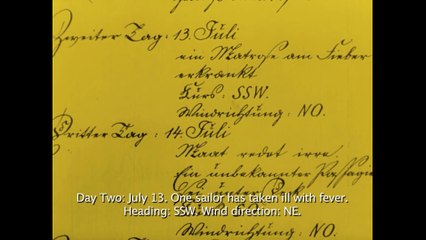 Zweiter Tag: 13. Juli
ein Matrose am Fieber
erkrankt
Kurs: SSW.
Windrichtung: NO.
Dritter Tag: 14. Juli
Maat redet irre,
Ein unbekannter Passagier
sei unter Deck
Day Two: July 13. One sailor has taken ill with fever.
Heading: SSW. Wind direction: NE.
Windrichtung: NO.